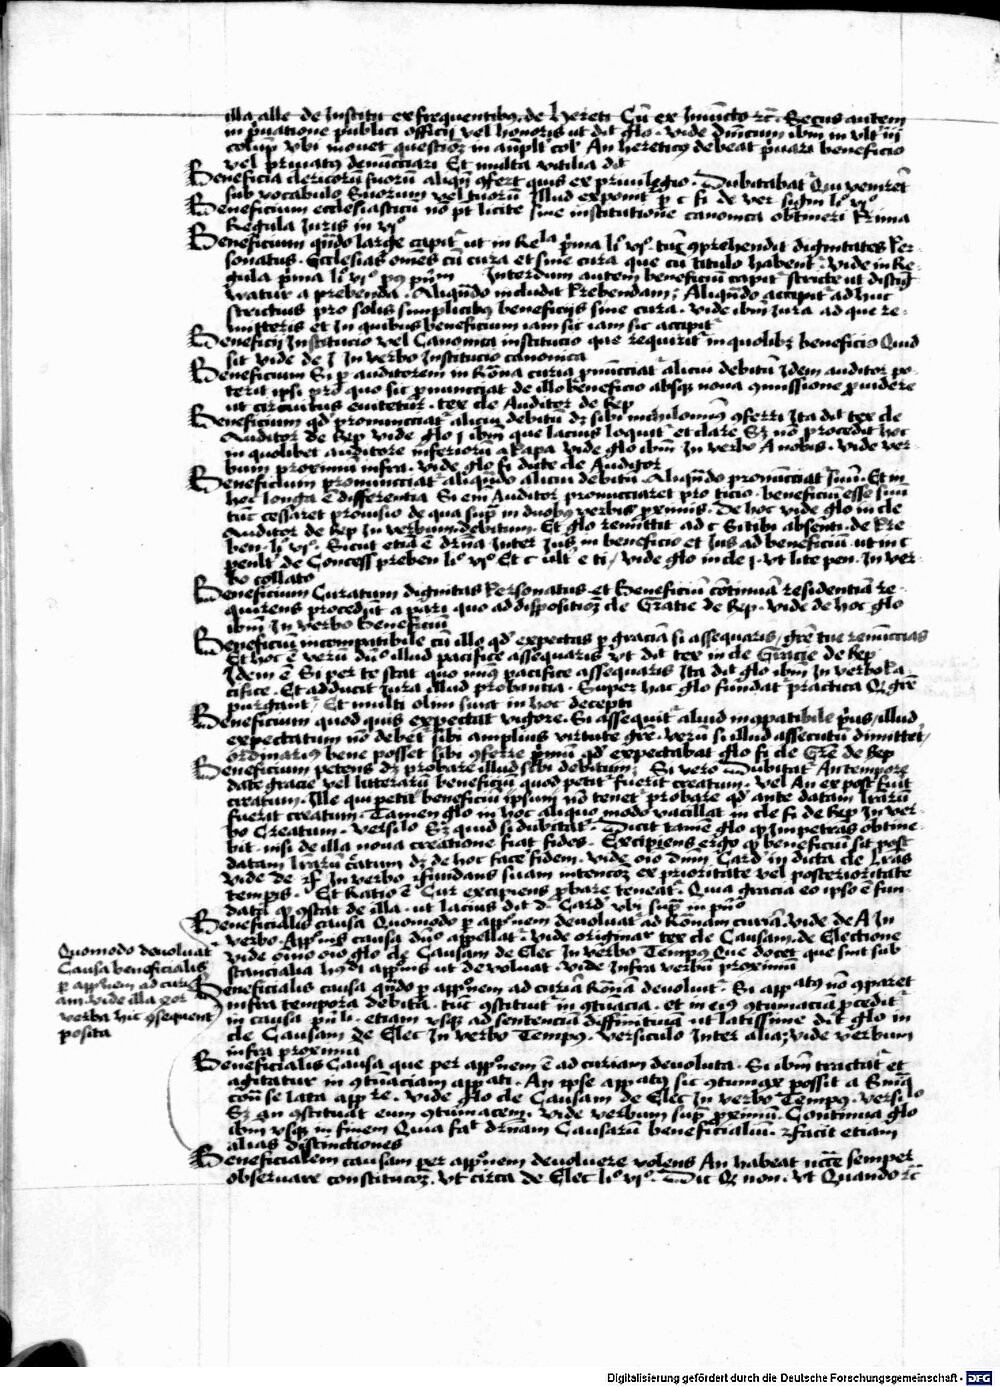 illa alle de Institu ex frequentibus, de hereti Cū ex Iniuncto rc̄. Secus autem
in p̄uatione publici officij vel honoris ut dit glo. vide dm̄cum ibm̄ in vlt iij
colup̄ vbi mouet question̄ in ampli col An hereticus debeat p̄uari beneficio
vel priuatus denunciari Et multa vtilia dit
Beneficia clericorū suorū aliqn̄ 9fert quis ex priuilegio. Dubitabat Qui venirēt
sub vocabulo Suorum vel tuorū Illud exponit p c fi de ver sigm li° vi°
Beneficium ecclesiasticū nō pt licite sine institutione canonica obtineri Prima
Regula Iuris in vi°
Beneficium qn̄do large capit ut in Rela p̄ma li° vi°. tūc 9prehendit dignitates Per-
sonatus. Ecclesias om̄es cū cura et sine cura que cū titulo habent. vide in Re-
gula p̄ma li° vi° Interdum autem beneficiū capit stricte ut disting
watur a prebenda. Aliqn̄do includit Prebendam; Aliqn̄do accipit ad huc
strictius pro solis simplicibus beneficijs sine cura. vide ibm̄ Iura ad que re-
mitteris et In quibus beneficium iam sic iam sic accipit
Beneficij Institucio vel Canonica institucio que requirit in quolibz beneficio Quid
sit vide de I In verbo Institucio canonica
Beneficium Si p auditorem in Rōna curia p̄nūcciat alicui debitū Idem auditor po-
terit ipsi pro quo sic p̄nuncciat de illo beneficio absqz noua 9missione p̄uidere
ut circuitus euitetur. tex cle Auditor de Rep
Beneficium qd pronuncciat alicui debitū dz sibi nichilominus 9ferri Ita dit tex cle
Auditor de Rep vide glo j ibm̄ que lacius loquit et clare Sz nō procedit hoc
in quolibet auditore inferiorū a Papa vide glo ibm̄ In verbo A nobis. vide ver-
bum proximū infra. vide glo fi dicte cle Auditor
Beneficium pronuncciat aliqn̄do alicui debitū. Aliqn̄do pronūcciat suū. Et in
hoc longa ē differentia Si em̄ Auditor pronucciaret pro ticio. beneficiū esse suū
tūc cessaret prouisio de qua sup̄ in duobus verbis p̄ximis. De hoc vide glo in cle
Auditor de Rep In verbum debitum. Et glo remittit ad c Si tibi absenti. de Pre
ben. li° vi°. Sicut etiā ē drn̄a Inter Ius in beneficio et Ius ad beneficiū. ut in c
penlt de Concess preben li° vi° Et c ult e ti, vide glo in cle j. vt lite pen. In ver-
bo collato
Beneficium Curatum dignitas Personatus et Beneficiū cōtinuā residentiā re-
quirens procedūt a pari quo ad disposition̄ cle Gratie de Rep. vide de hoc glo
ibm̄ In verbo Beneficiū
Beneficiū incompatibile cū illo qd expectas p graciā si assequaris, grē tue renūccias
Et hoc ē verū dū° illud pacifice assequaris vt dit tex in cle Gracie de Rep
Idem ē Si per te stat quo minus pacifice assequaris Ita dit glo ibm̄ In verbo Pa
cifice. Et adducit Iura illud probantia. Super hac glo fundat practica Q grē
purgant, Et multi olim fiunt in hoc decepti
Beneficium quod quis expectat vigore. Si assequit aliud inpatibile p̄us, illud
expectatum nō debet sibi amplius virtute grē. verū si illud assecutū dimittet,
ordinarius bene posset sibi 9ferre p̄mū qd expectabat glo fi cle Grē de Rep
Beneficium petens dz probare illud sibi debitum; Si vero Dubitat An tempore
date gracie vel litterarū beneficiū quod petit fuerit creatum. vel An ex post fuit
creatum. Ille qui petit beneficiū ipsum nō tenet probare qd ante datam lrārū
fuerit creatum. Tamen glo in hoc aliquo modo vacillat in cle fi de Rep In ver-
bo Creatum. versilo Sz quid si dubitat. Dicit tamē glo qz Impetras obtine
bit. nisi de illa noua creatione fiat fides. Excipiens ergo qz beneficiū sit post
datam lrārū c̄atum dz de hoc face fidem. vide oio dnm̄ Card in dicta cle Lrās
vide de If In verbo fundans suam intencoz ex prioritate vel posterioritate
tempis. Et Ratio ē Cur excipiens p̄bare teneat. Quia gracia eo ipso ē fun-
data qz 9stat de illa. ut lacius dit d Card vbi sup̄ in p̄n°
Beneficialis causa Quomodo p app°nem deuoluat ad Rōnam curiā. vide de A In
verbo. App°nis causa dū° appellat. vide originar tex cle Causam. de Electione
vide oīno oio glo cle Causam de Elec In verbo Tempus Que docet que sint sub
stancialia app°nis ut deuoluat. vide Infra verbū proximū
Beneficialis causa qn̄do p app°nem ad curiā Rōnā deuoluit. Si app°atus nō 9paret
infra tempora debita. tūc 9stituit in 9tūacia. et in eius 9tumaciā p̄cedit
in causa. etiam vsqz ad sentenciā diffinitiuā ut latissime dit glo in
cle Causam de Elec In verbo Tempus. versiculo Inter alia; vide verbum
infra proximū
Beneficialis Causa que per app°nem ē ad curiam deuoluta. Si ibm̄ tractat et
agitatur in 9tuaciam app°ati. An ipse app°atus sic 9tumax possit a
se lata app°re. vide glo cle Causam de Elec In verbo Tempus. versilo
Sz an 9stituat eum 9tumacem. vide verbum sup̄ p̄ximū. Continua glo
ibm̄ vsqz in finem Quia fat drn̄am Causarū beneficialiū. facit etiam
alias distinctiones
Beneficialem causam per app°nem deuoluere volens An habeat semper
obseruare constitucoz. vt circa de Elec li° vi°. Dic Q non. vt Quando rc̄
Quomodo deuoluat
Causa beneficialis
p app°nem ad curi
am. vide illa
verba hic 9sequent
posita
Digitalisierung gefördert durch die Deutsche Forschungsgemeinschaft - DFG